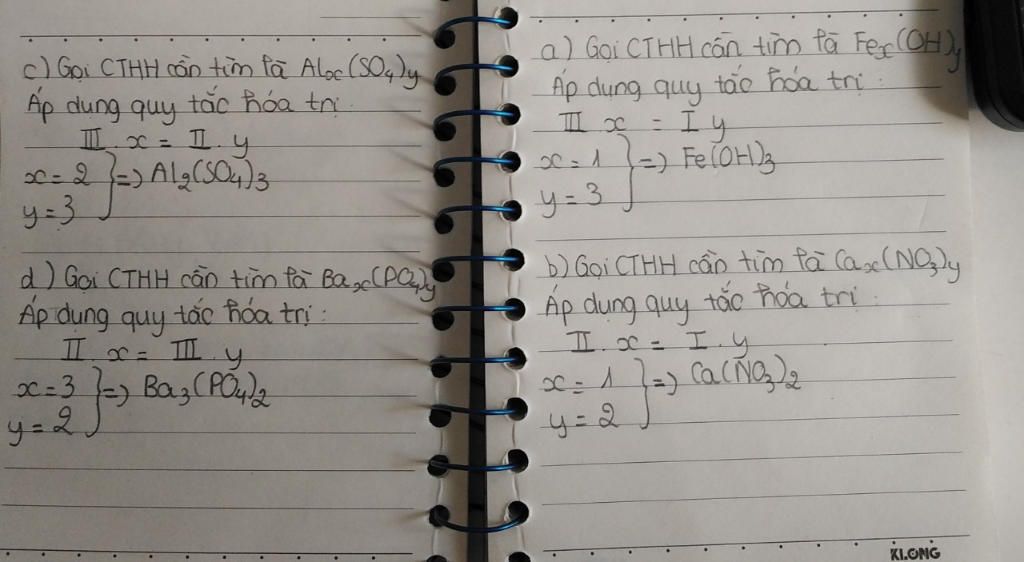 c) Gọi CTHH cần tìm là Alx(SO4)y
Áp dụng quy tắc hóa trị:
III . x = II . y
x = 2
y = 3
} => Al2(SO4)3
d) Gọi CTHH cần tìm là Bax(PO4)y
Áp dụng quy tắc hóa trị:
II . x = III . y
x = 3
y = 2
} => Ba3(PO4)2
a) Gọi CTHH cần tìm là Fex(OH)y
Áp dụng quy tắc hóa trị:
III . x = I . y
x = 1
y = 3
} => Fe(OH)3
b) Gọi CTHH cần tìm là Cax(NO3)y
Áp dụng quy tắc hóa trị:
II . x = I . y
x = 1
y = 2
} => Ca(NO3)2
KLONG